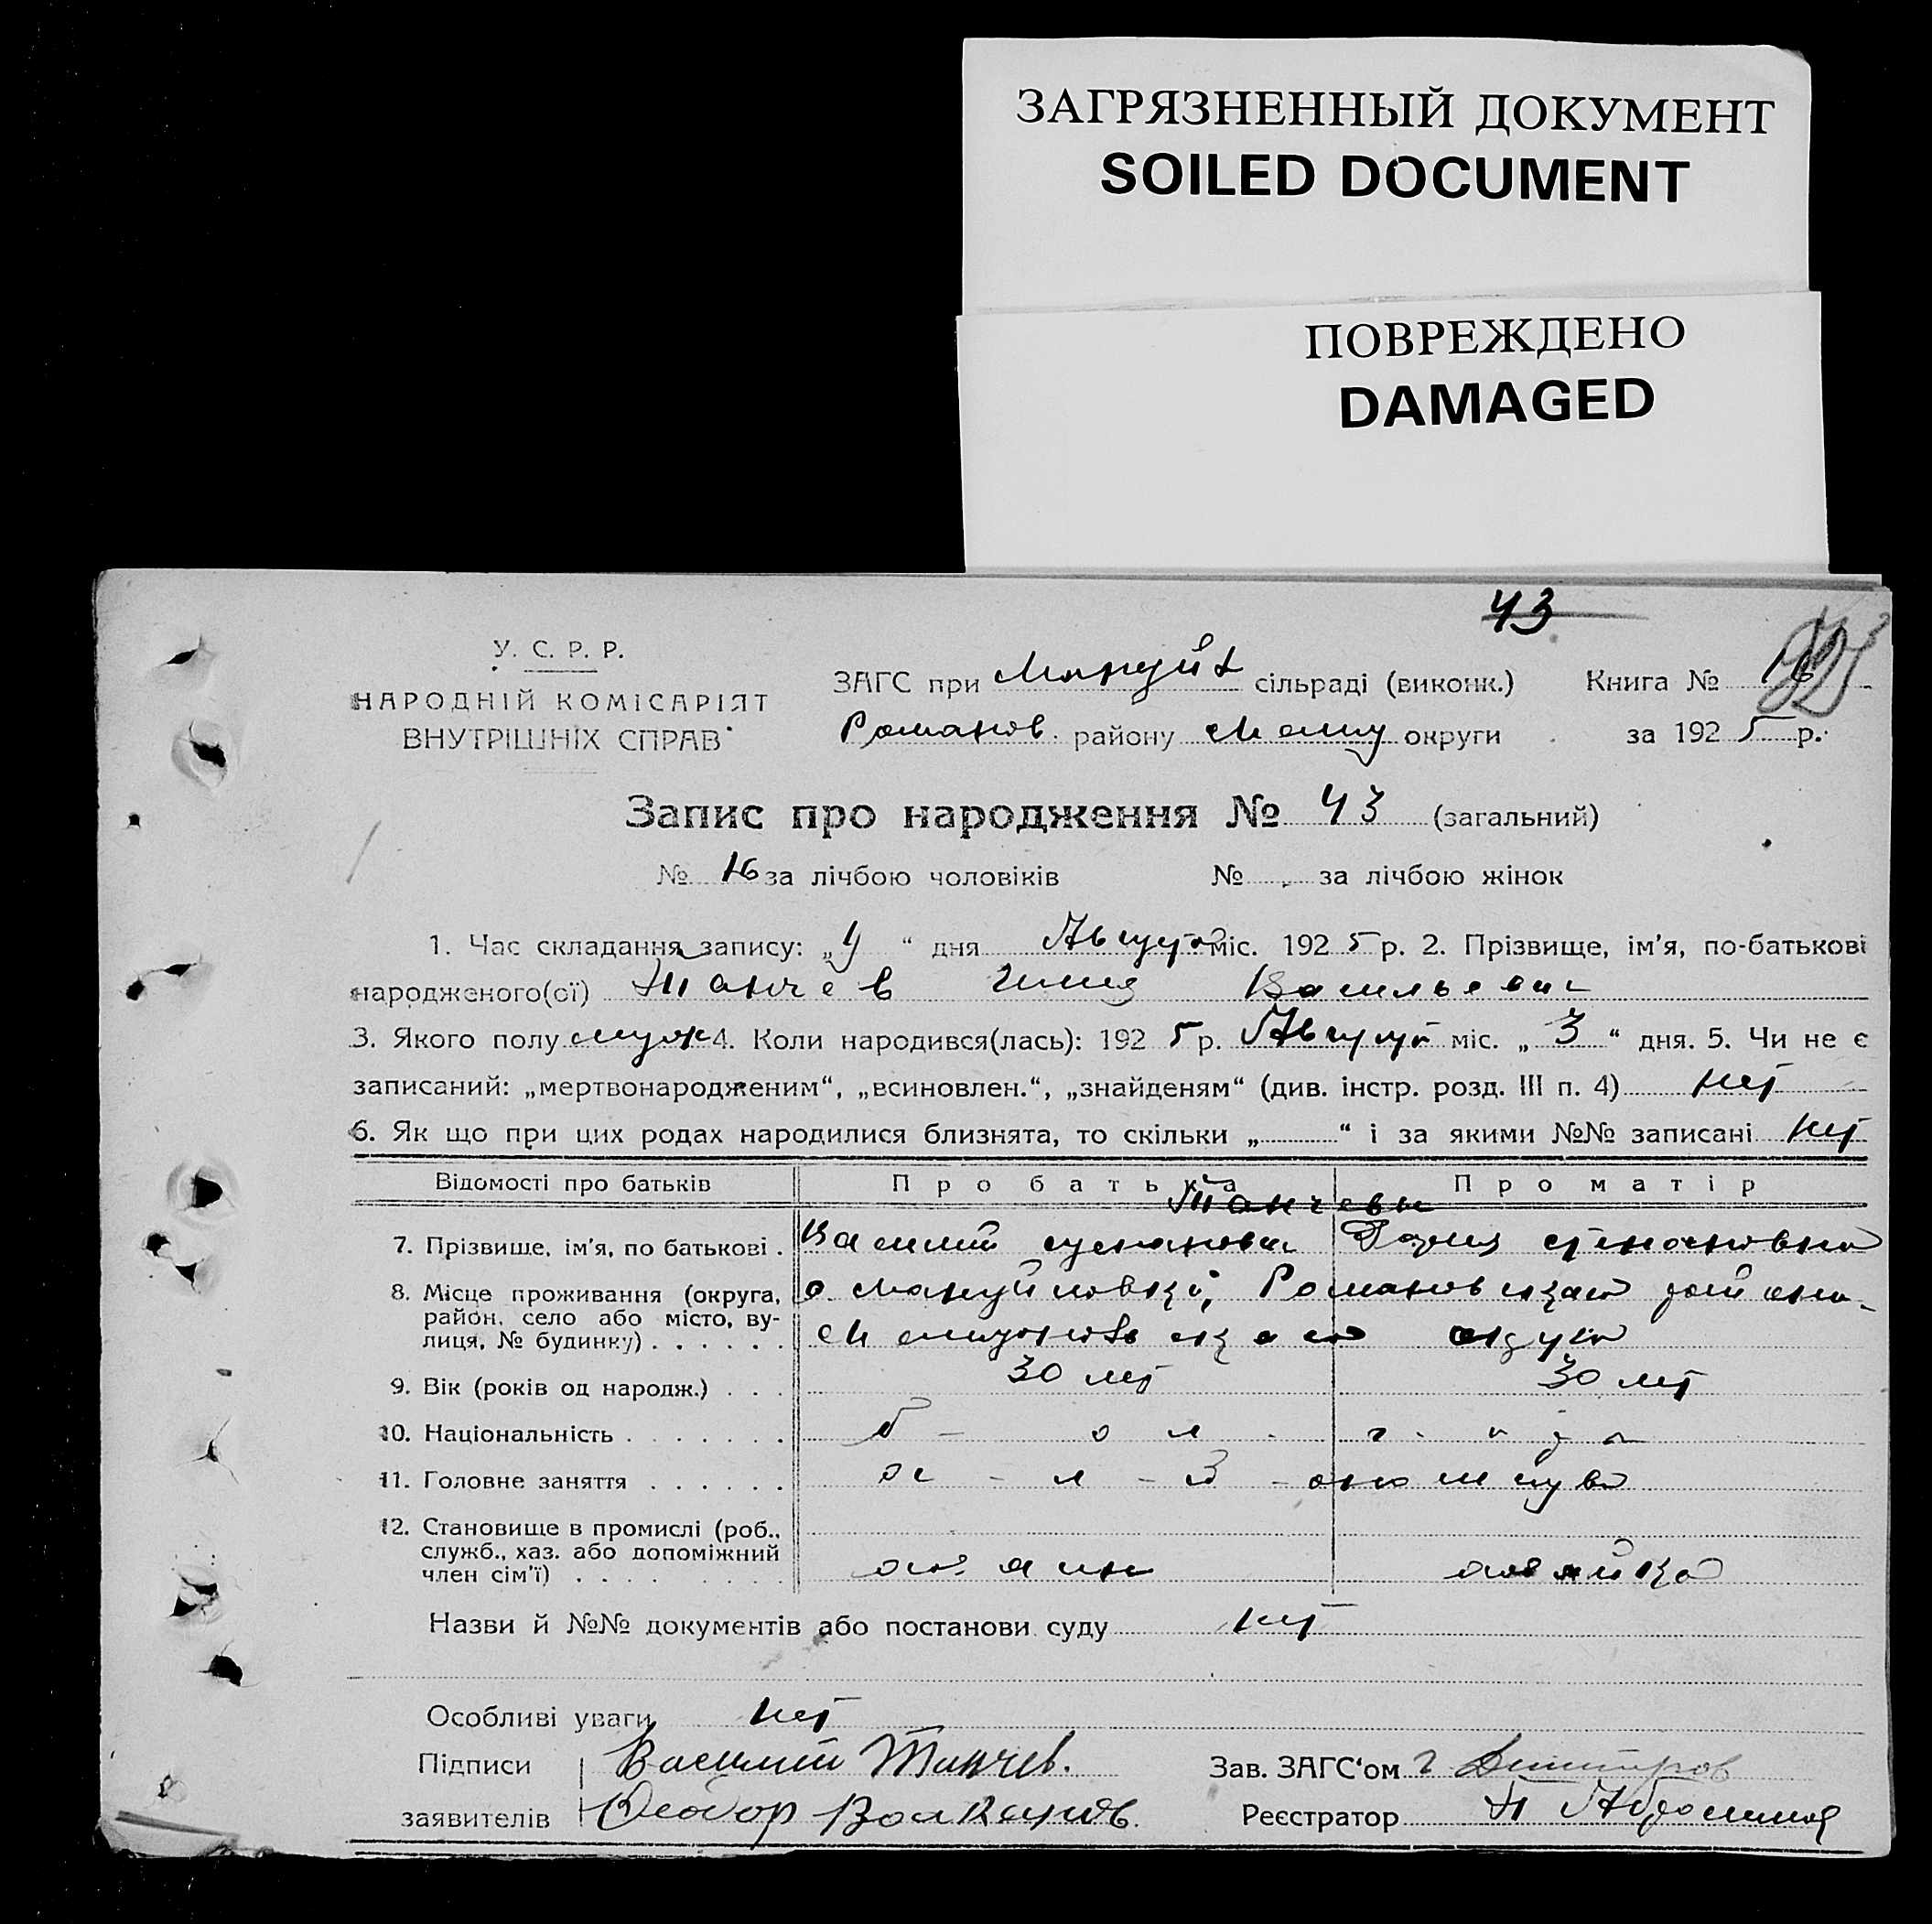 ЗАГРЯЗНЕННЫЙ ДОКУМЕНТ
SOILED DOCUMENT
ПОВРЕЖДЕНО
DAMAGED
43
У. С. Р. Р.
НАРОДНІЙ КОМІСАРІЯТ
ВНУТРІШНІХ СПРАВ
ЗАГС при Мануйл сільраді (виконк.) Книга №
Романов. району Мелит округи за 1925 р.
Запис про народження № 43 (загальний)
№ 16 за лічбою чоловіків № за лічбою жінок
1. Час складання запису: „4“ дня Август міс. 1925 р. 2. Прізвище, ім'я, по-батькові
народженого(ої) Танчев Илия Васильевич
3. Якого полу муж 4. Коли народився(лась): 1925 р. Август міс. „3“ дня. 5. Чи не є
записаний: „мертвонародженим“, „всиновлен.“, „знайденям“ (див. інстр. розд. III п. 4) нет
6. Як що при цих родах народилися близнята, то скільки „ “ і за якими №№ записані нет
Відомості про батьків Про батька Про матір
Танчевы
7. Прізвище, ім'я, по батькові . Василий Дария
8. Місце проживання (округа, район, село або місто, вулиця, № будинку) . . . . . . с. Мануйловки, Романовскаго района
округа
9. Вік (років од народж.) . . . 30 лет 30 лет
10. Національність . . . . . . . болгары
11. Головне заняття . . . . . .
12. Становище в промислі (роб.,
служб., хаз. або допоміжний
член сім'ї) . . . . . . . . . хозяин хозяйка
Назви й №№ документів або постанови суду нет
Особливі уваги нет
Підписи Василий Танчев. Зав. ЗАГС'ом Г Димитров
заявителів Феодор Волканов. Реєстратор